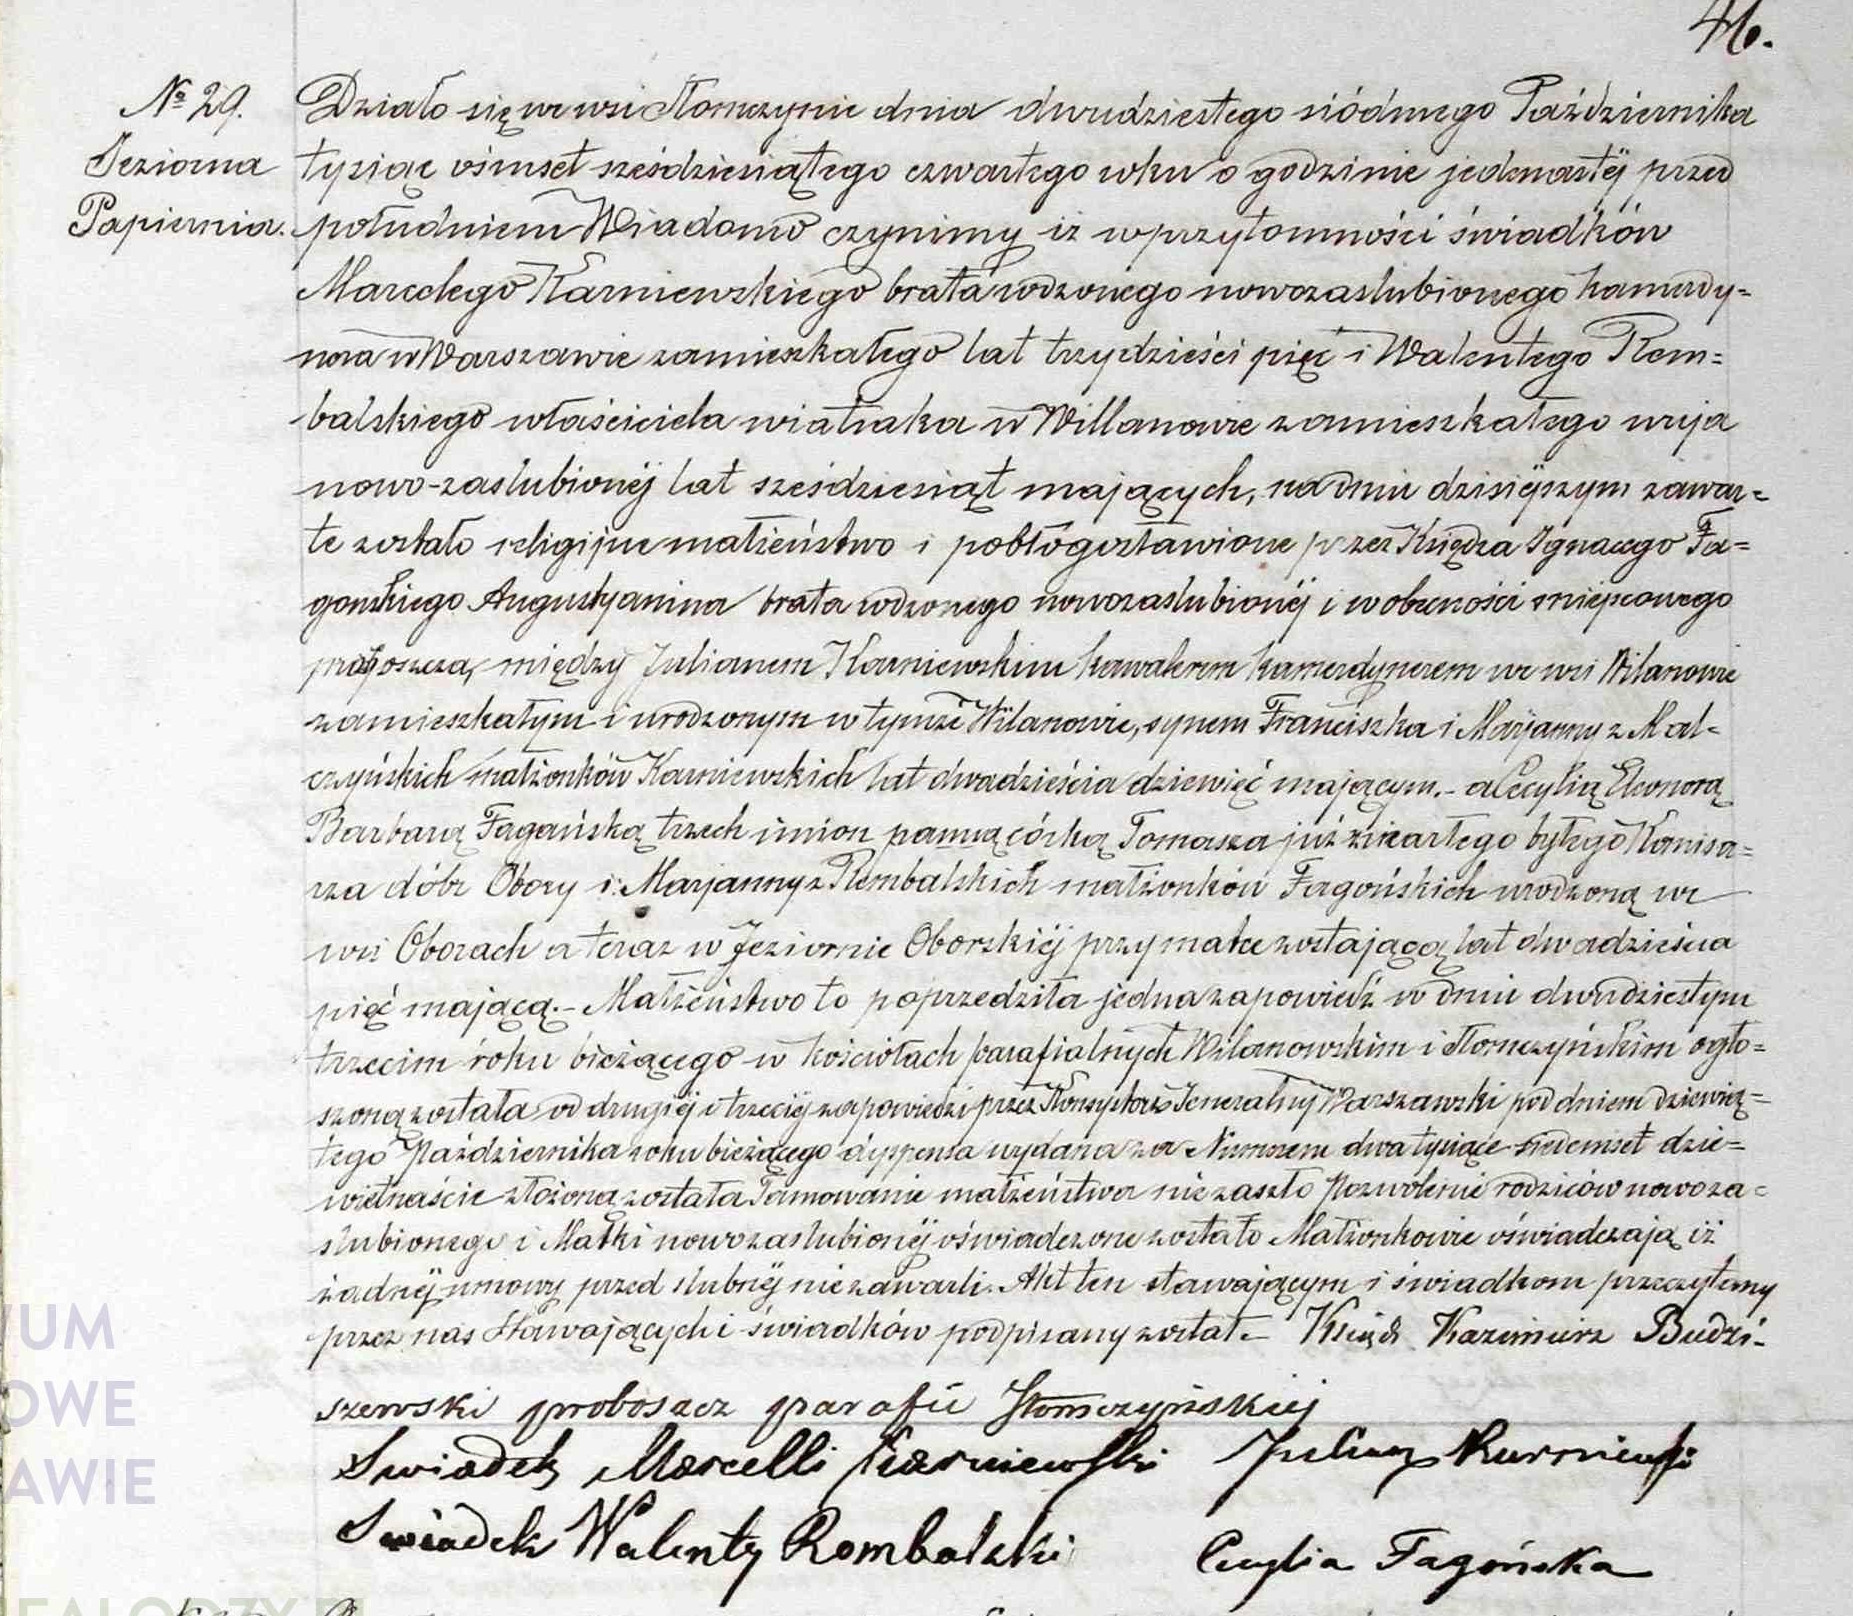 46.
№ 29.
Jeziorna
Papiernia.
Działo się we wsi Słomczynie dnia dwudziestego siódmego Października
tysiąc ośmset sześdziesiątego czwartego roku o godzinie jedenastéj przed
południem Wiadomo czynimy iż w przytomności świadków
Marcelego Karniewskiego brata rodzonego nowozaslubionego kamerdy=
nera w Warszawie zamieszkałego lat trzydzieści pięć i Walentego Rem=
balskiego właściciela wiatraka w Willanowie zamieszkałego wuja
nowo-zaslubionéj lat sześdziesiąt mających, na dniu dzisiéjszym zawar=
te zostało religijne małżeństwo i pobłogosławione przez Księdza Ignacego Fa=
gońskiego Augustyanina brata rodzonego nowozaslubionéj i w obecności miéjscowego
proboszcza, między Julianem Karniewskim kawalerem kamerdynerem we wsi Wilanowie
zamieszkałym i urodzonym w tymże Wilanowie, synem Franciszka i Marjanny z Mal=
czyńskich małżonków Karniewskich lat dwadzieścia dziewięć mającym.- a Cecylią Eleonorą
Barbarą Fagońską trzech imion panną córką Tomasza już zmarłego byłego Komisa=
rza dóbr Obory i Marjanny z Rembalskich małżonków Fagońskich urodzoną we
wsi Oborach a teraz w Jeziornie Oborskiéj przy matce zostającą lat dwadzieścia
pięć mającą.- Małżeństwo to poprzedziła jedna zapowiedź w dniu dwudziestym
trzecim roku bieżącego w kościołach parafialnych Wilanowskim i Słomczyńskim ogło=
szoną została od drugiéj i trzeciéj zapowiedzi przez Konsystorz Jeneralny Warszawski pod dniem dziewią=
tego Października roku bieżącego dyspensa wydana za Numerem dwa tysiące siedemset dzie=
więtnaście złożoną została Tamowanie małżeństwa nie zaszło Pozwolenie rodziców nowoza=
slubionego i Matki nowozaslubionéj oświadczone zostało Małżonkowie oświadczają iż
żadnéj umowy przed slubnéj nie zawarli. Akt ten stawającym i świadkom przeczytany
przez nas Stawających i świadków podpisany został.- Ksiądz Kazimierz Budzi-
szewski proboszcz parafii Słomczyńskiej
Swiadek Marcelli Karniewski Julian Karniewski
Swiadek Walenty Rombalski Cecylia Fagońska
UM
OWE
AWIE